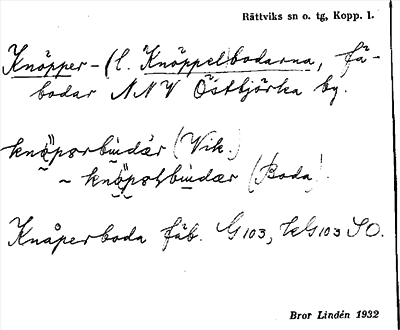 Rättviks sn o. tg, Kopp. l.
Knöpper- (l. Knöppelbodarna, fä-
bodar NNV Östbjörka by.
knöpsrbùdàr (Vik.)
~ knöpslbùdær (Boda).
Knåperboda fäb. G103, KG103 SO.
Bror Lindén 1932